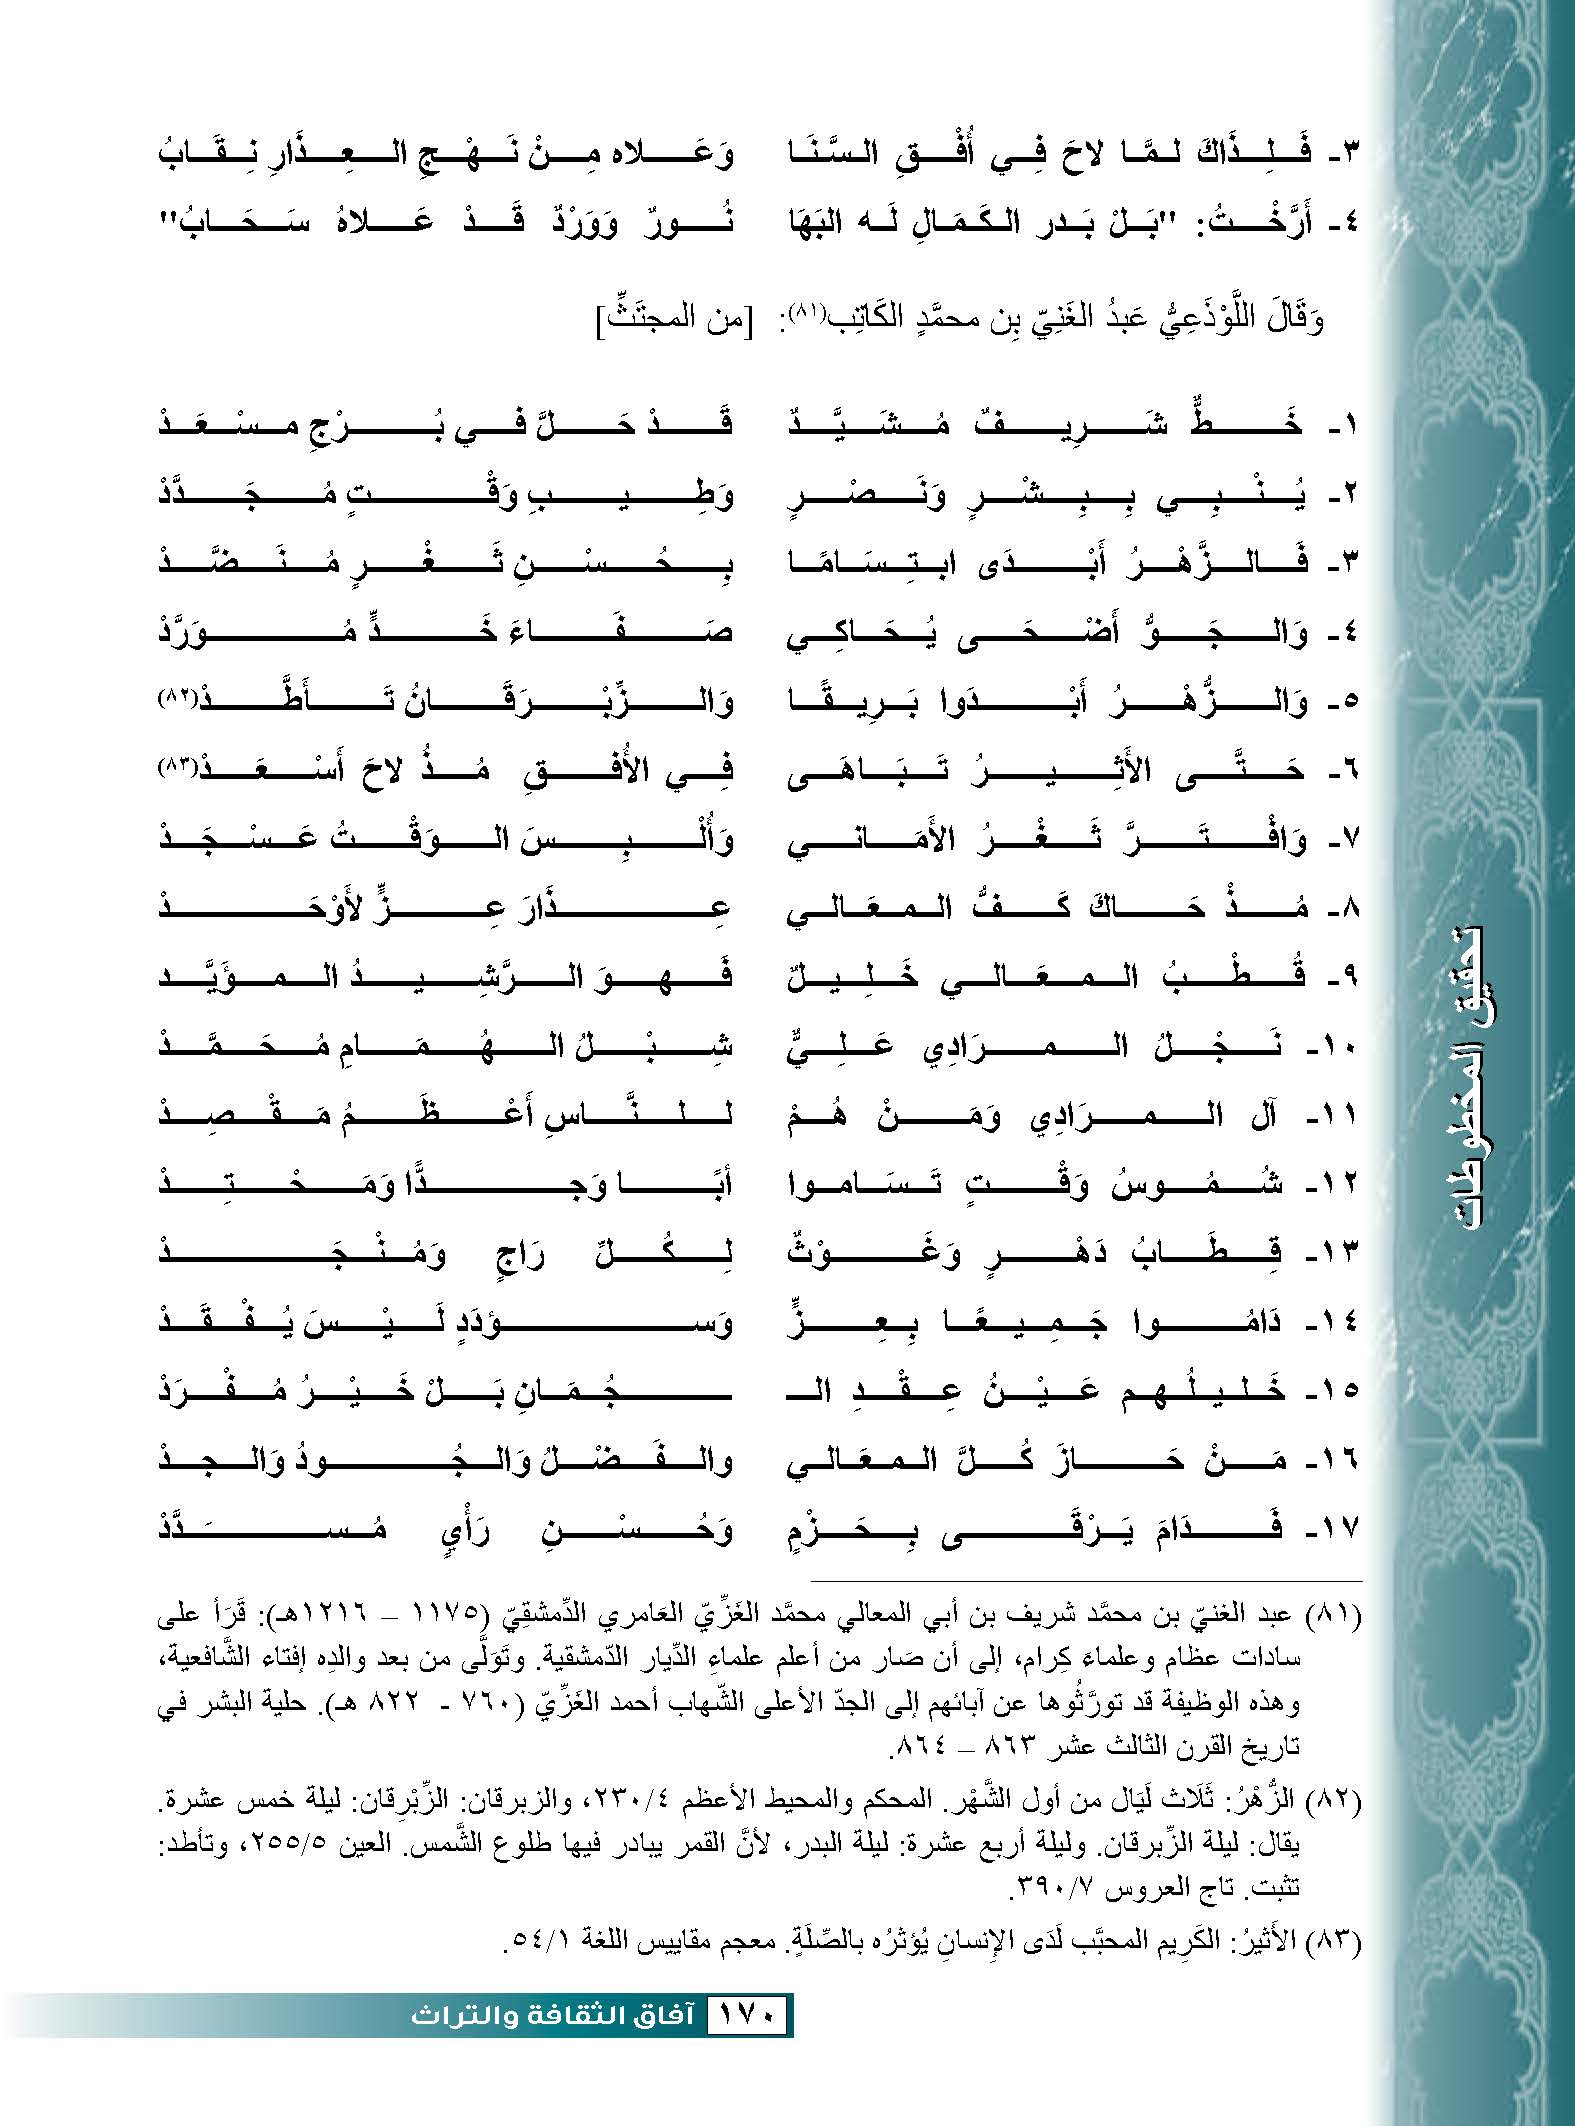 ٣- فَلِذَاكَ لمَّا لاحَ فِي أُفْقِ السَّنَا وَعَلاه مِنْ نَهْجِ العِذَارِ نِقَابُ
٤- أَرَّخْتُ: "بَلْ بَدر الكَمَالِ لَه البَهَا نُورٌ وَوَرْدٌ قَدْ عَلاهُ سَحَابُ"
وَقَالَ اللَّوْذَعِيُّ عَبدُ الغَنِيّ بِن محمَّدٍ الكَاتِب(٨١): [من المجتَثِّ]
١- خَطٌّ شَرِيفٌ مُشَيَّدٌ قَدْ حَلَّ في بُرْجِ مسْعَدْ
٢- يُنْبِي بِبِشْرٍ وَنَصْرٍ وَطِيبِ وَقْتٍ مُجَدَّدْ
٣- فَالزَّهْرُ أَبْدَى ابتِسَامًا بِحُسْنِ ثَغْرٍ مُنَضَّدْ
٤- وَالجَوُّ أَضْحَى يُحَاكِي صَفَاءَ خَدٍّ مُوَرَّدْ
٥- وَالزُّهْرُ أَبْدَوا بَرِيقًا وَالزِّبْرَقَانُ تَأَطَّدْ(٨٢)
٦- حَتَّى الأَثِيرُ تَبَاهَى فِي الأُفقِ مُذُ لاحَ أَسْعَدْ(٨٣)
٧- وَافْتَرَّ ثَغْرُ الأَمَاني وَأُلْبِسَ الوَقْتُ عَسْجَدْ
٨- مُذْ حَاكَ كَفُّ المعَالي عِذَارَ عِزٍّ لأَوْحَدْ
٩- قُطْبُ المعَالي خَلِيلٌ فَهوَ الرَّشِيدُ المؤَيَّد
١٠- نَجْلُ المرَادِي عَلِيٌّ شِبْلُ الهُمَامِ مُحَمَّدْ
١١- آل المرَادِي وَمَنْ هُمْ للنَّاسِ أَعْظَمُ مَقْصِدْ
١٢- شُمُوسُ وَقْتٍ تَسَاموا أبًا وَجدًّا وَمَحْتِدْ
١٣- قِطَابُ دَهْرٍ وَغَوْثٌ لِكُلِّ رَاجٍ وَمُنْجَدْ
١٤- دَامُوا جَمِيعًا بِعِزٍّ وَسؤدَدٍ لَيْسَ يُفْقَدْ
١٥- خَليلُهم عَيْنُ عِقْدِ الـ ـجُمَانِ بَلْ خَيْرُ مُفْرَدْ
١٦- مَنْ حَازَ كُلَّ المعَالي والفَضْلُ وَالجُودُ وَالجدْ
١٧- فَدَامَ يَرْقَى بِحَزْمٍ وَحُسْنِ رَأْيٍ مُسَدَّدْ
(٨١) عبد الغنيّ بن محمَّد شريف بن أبي المعالي محمَّد الغَزِّيّ العَامري الدِّمشقِيّ (١١٧٥ – ١٢١٦هـ): قَرَأ على
سادات عظام وعلماءَ كِرام، إلى أن صَار من أعلم علماءِ الدِّيار الدّمشقية. وتَوَلَّى من بعد والدِه إفتاء الشَّافعية،
وهذه الوظيفة قد تورَّثُوها عن آبائهم إلى الجدّ الأعلى الشّهاب أحمد الغَزِّيّ (٧٦٠ - ٨٢٢ هـ). حلية البشر في
تاريخ القرن الثالث عشر ٨٦٣ – ٨٦٤.
(٨٢) الزُّهْرُ: ثَلَاث لَيَال من أول الشَّهْر. المحكم والمحيط الأعظم ٢٣٠/٤، والزبرقان: الزِّبْرِقان: ليلة خمس عشرة.
يقال: ليلة الزِّبرقان. وليلة أربع عشرة: ليلة البدر، لأنَّ القمر يبادر فيها طلوع الشَّمس. العين ٢٥٥/٥، وتأطد:
تثبت. تاج العروس ٣٩٠/٧.
(٨٣) الأَثيرُ: الكَرِيم المحبَّب لَدَى الإِنسانِ يُؤثرُه بالصِّلَةٍ. معجم مقاييس اللغة ٥٤/١.
تحقيق المخطوطات
١٧٠ آفاق الثقافة والتراث